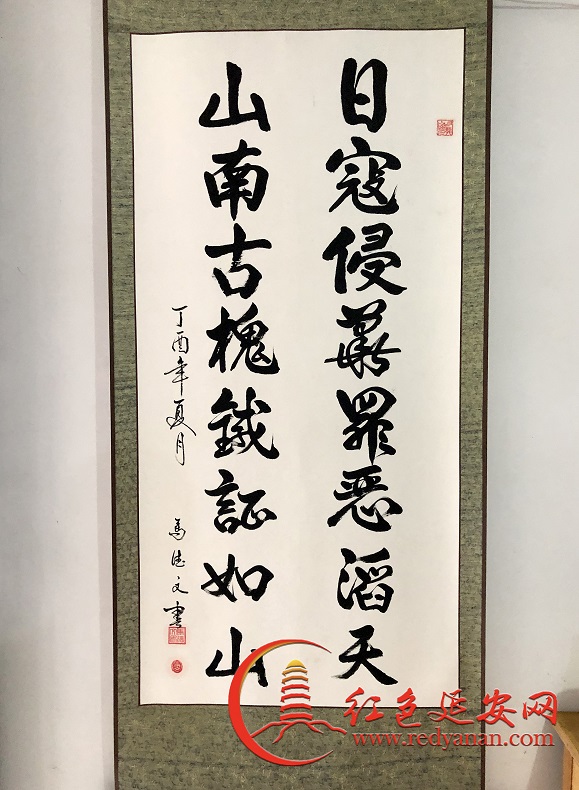 日寇侵華罪恶滔天
山南古槐鐵証如山
丁酉年夏月
馬德文書
红色延安网
www.redyanan.com